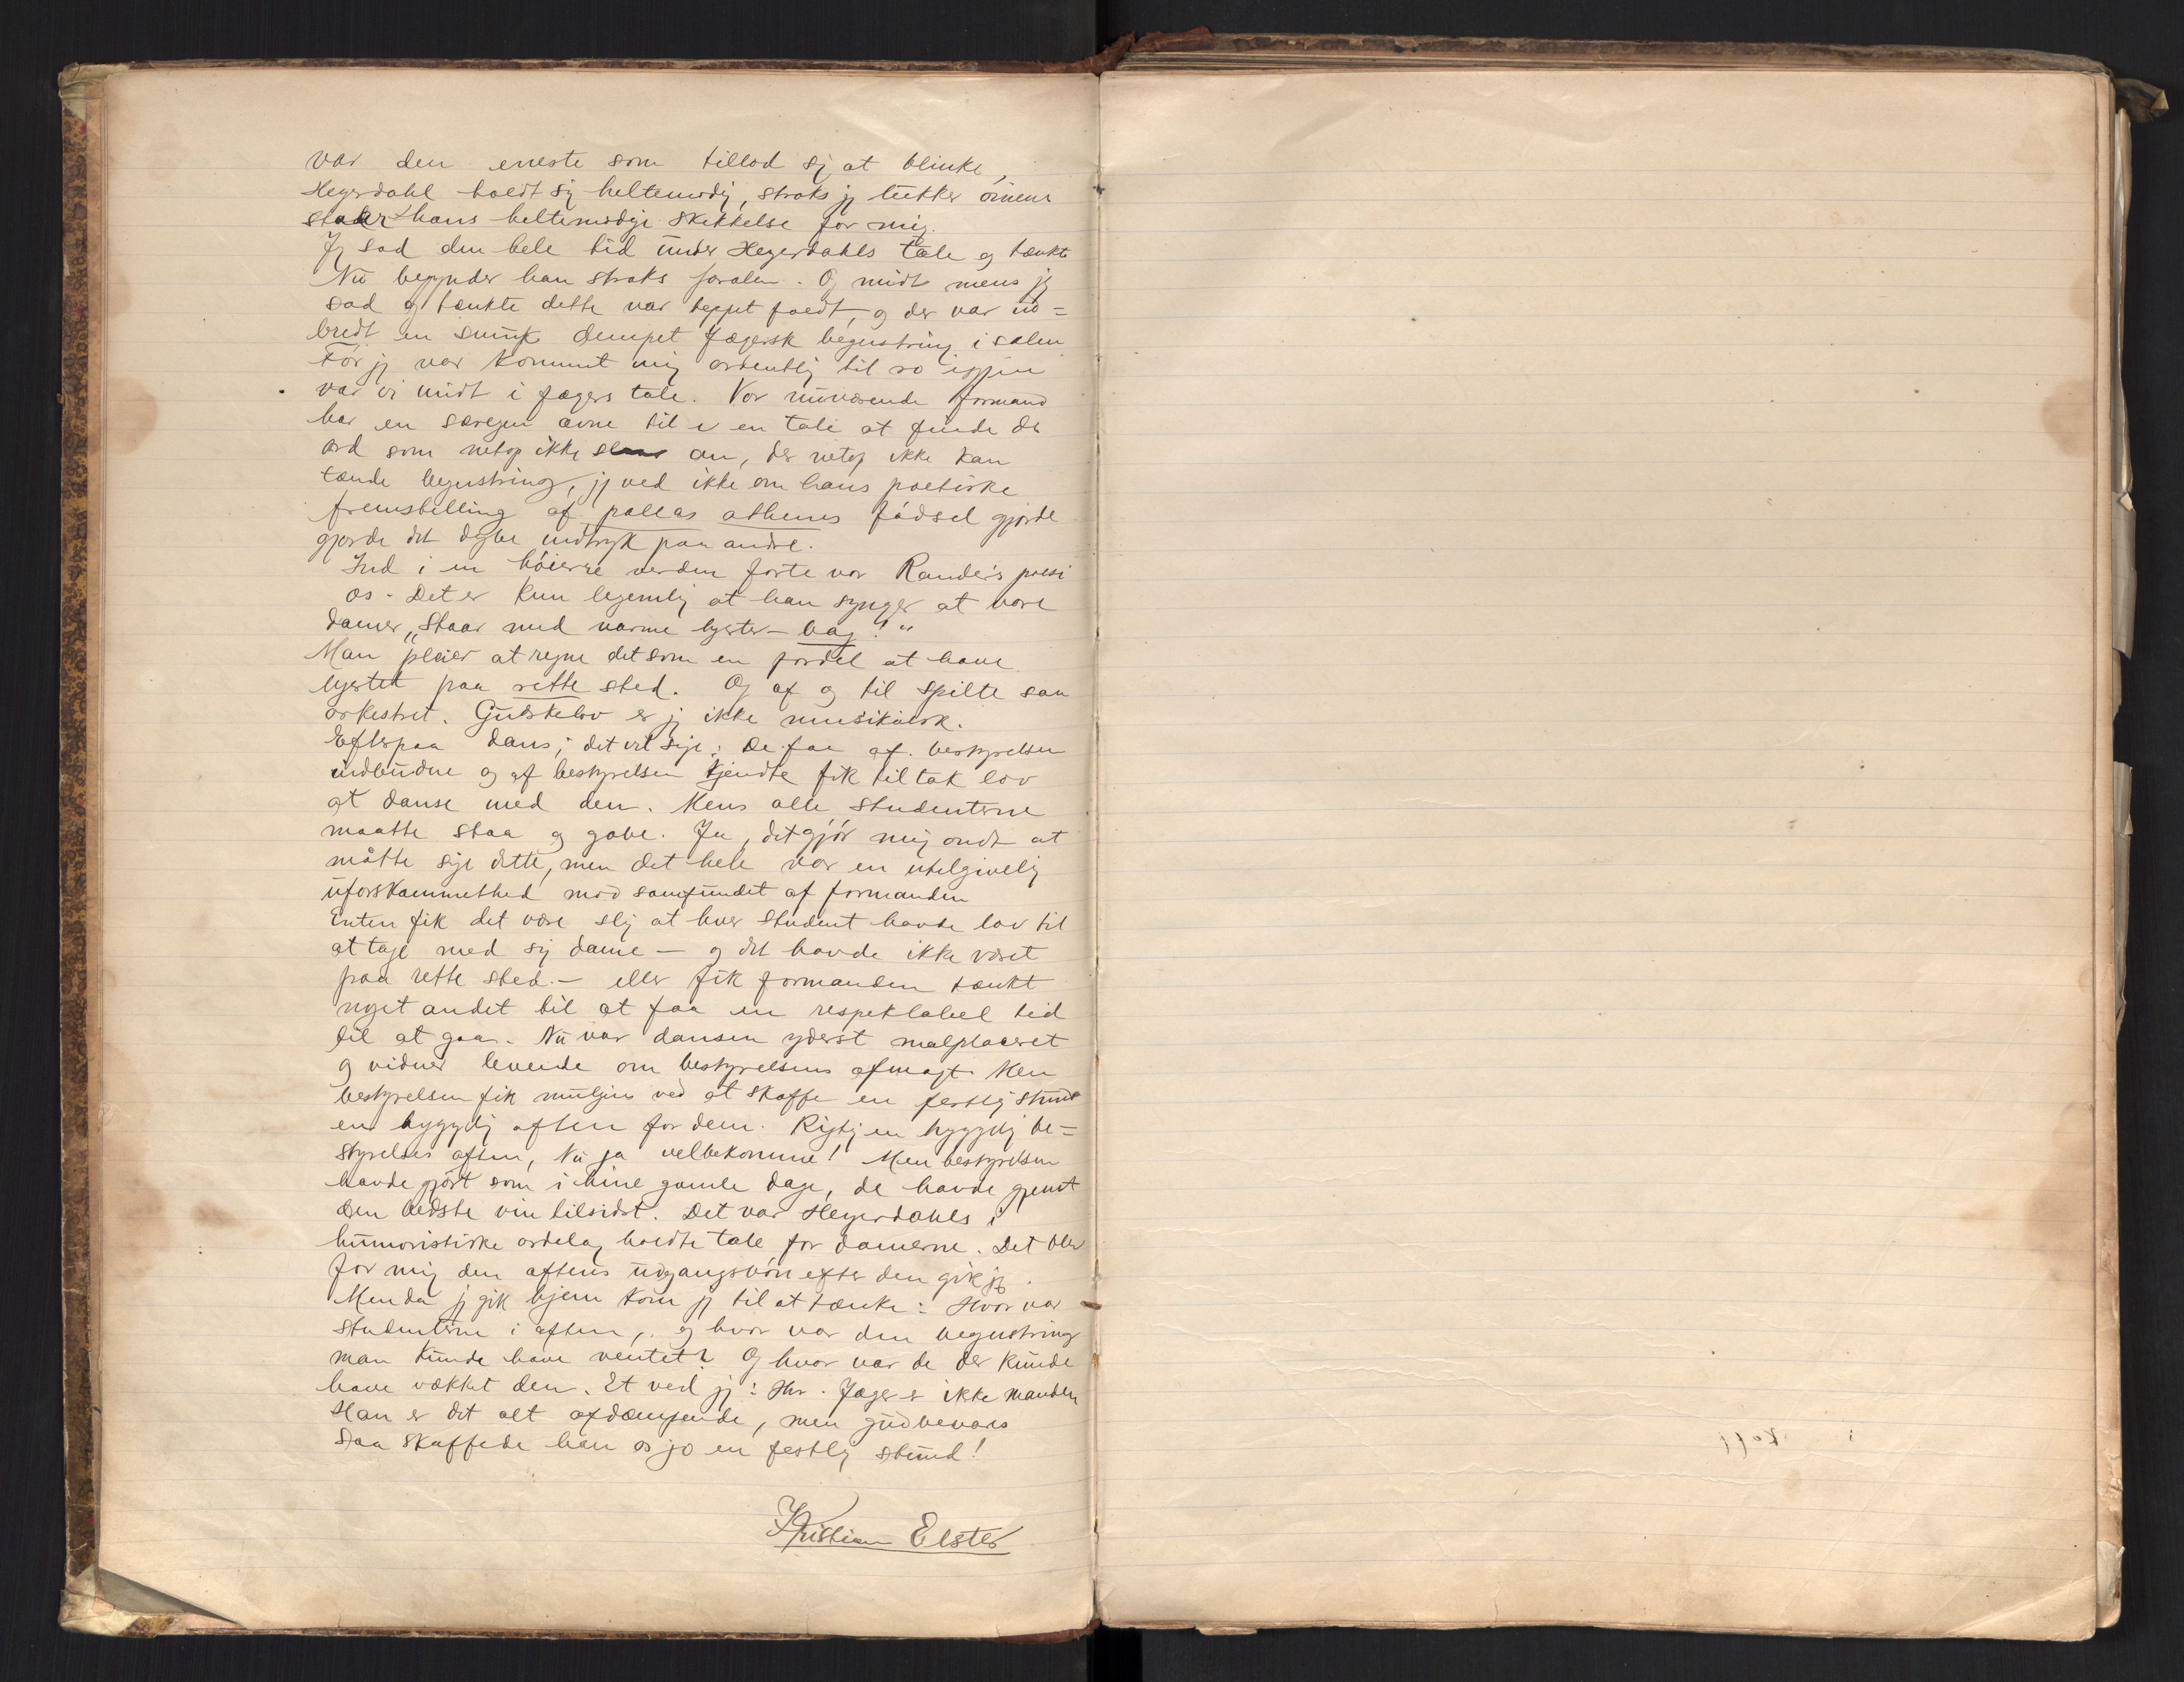 var den eneste som tillod sj at blinke,
Hegerdahl holdt sig heltemodig, straks jj lukker öinene
staar hans heltemodige skikkelse for mig.
Jg sad den hele tid under Hegerdahls tale og tænkte
Nu begynder han straks paralen. Og midt mens jg
sad og tænkte dette var teppet faldt, og der var ud=
bredt en dempet Jægersk begustring i salen
För jj var kommet mig ordentlig til ro igjen
var vi midt i Jægers tale. Vor nuværende formand
har en særegen ævne til i en tale at finde de
ord som netop ikke slaar an, der netop ikke kan
tænde begustring, jj ved ikke om hans poetiske
fremstilling af pallas athenes födsel gjorde
gjorde det dybe indtryk paa andre.
Ind i en höierre verden førte vor Randers poesi
os. Det er kun legemlig at han synger at vore
damer „staar med varme hjerter - bag!"
Man pleier at regne det som en fordel at have
hjertet paa rette sted. Og af og til spilte saa
orkestret. Gudskelov er jj ikke musikalsk.
Efterpaa dans; det vil sige: De faa af bestyrelsen
indbudne og af bestyrelsen kjendte fik til tak lov
at danse med den. Mens alle studenterne
maatte staa og gabe. Ja, det gjör mig ondt at
måtte sige dette, men det hele var en utilgivelig
uforskammethed mod samfundet af formanden
Enten fik det være slig at hver student havde lov til
at tage med sig dame — og det havde ikke været
paa rette sted. — eller fik formanden tænkt
noget andet til at faa en respektabel tid
til at gaa. Nu var dansen yderst malplaceret
og vidner levende om bestyrelsens afmagt. Men
bestyrelsen fik muligens ved at skaffe en festlig stund
en hyggelig aften for dem. Rigtig en hyggelig be=
styrelses aften, Nu ja velbekomme! Men bestyrelsen
havde gjört som i hine gamle dage, de havde gjemt
den bedste vin tilsidst. Det var Hegerdahls i
humoristiske ordelag holdte tale for damerne. Det blev
for mig den aftens udgangsbön efter den gik jg.
Men da jj gik hjem kom jj til at tænke: Hvor var
studenterne i aften, og hvor var den begustring
man kunde have ventet? Og hvor var de der kunde
have vækket den. Et ved jj: Hr. Jæger er ikke manden
Han er det alt afdæmpende, men gudbevares
saa skaffede han os jo en festlig stund!
Kristian Elster